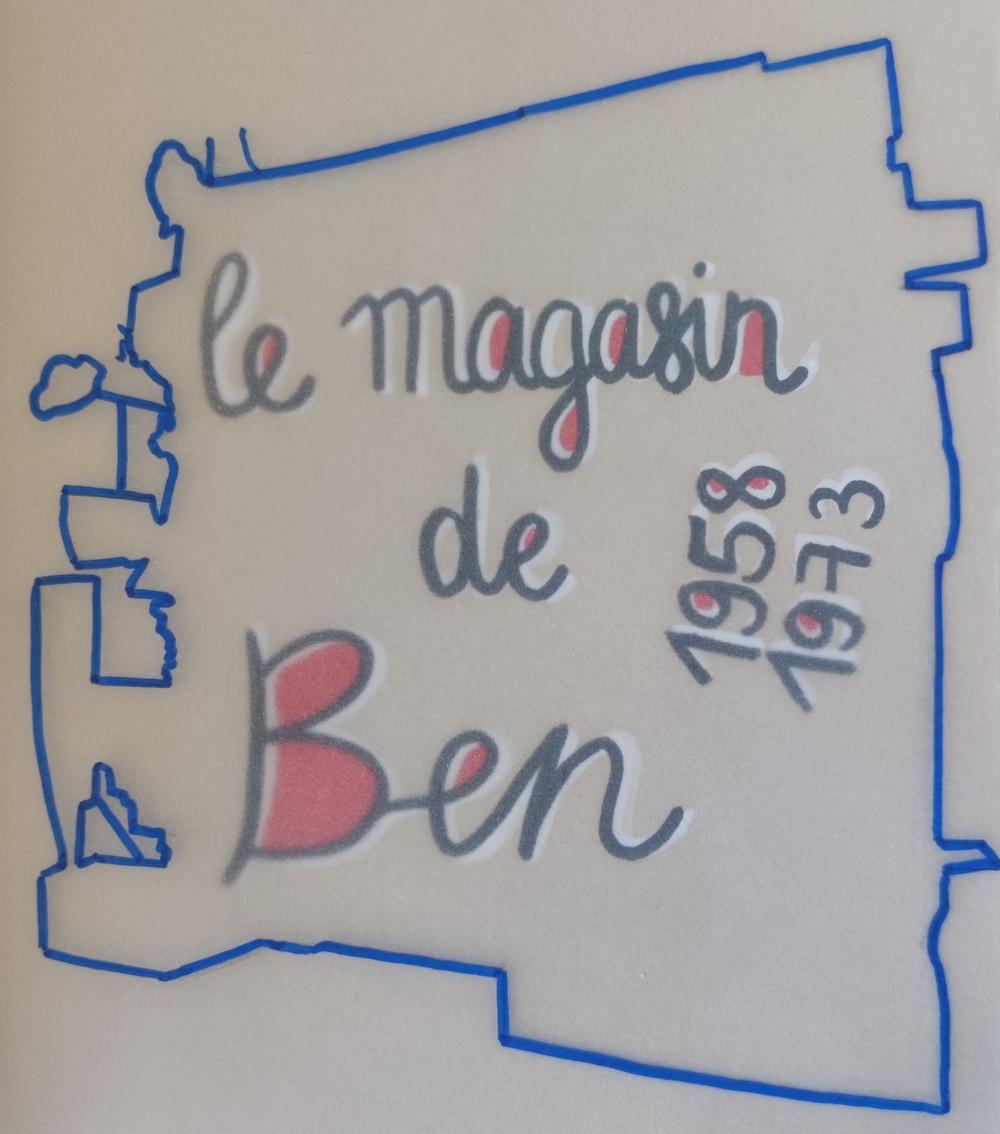 le magasin
de
Ben
1958
1973